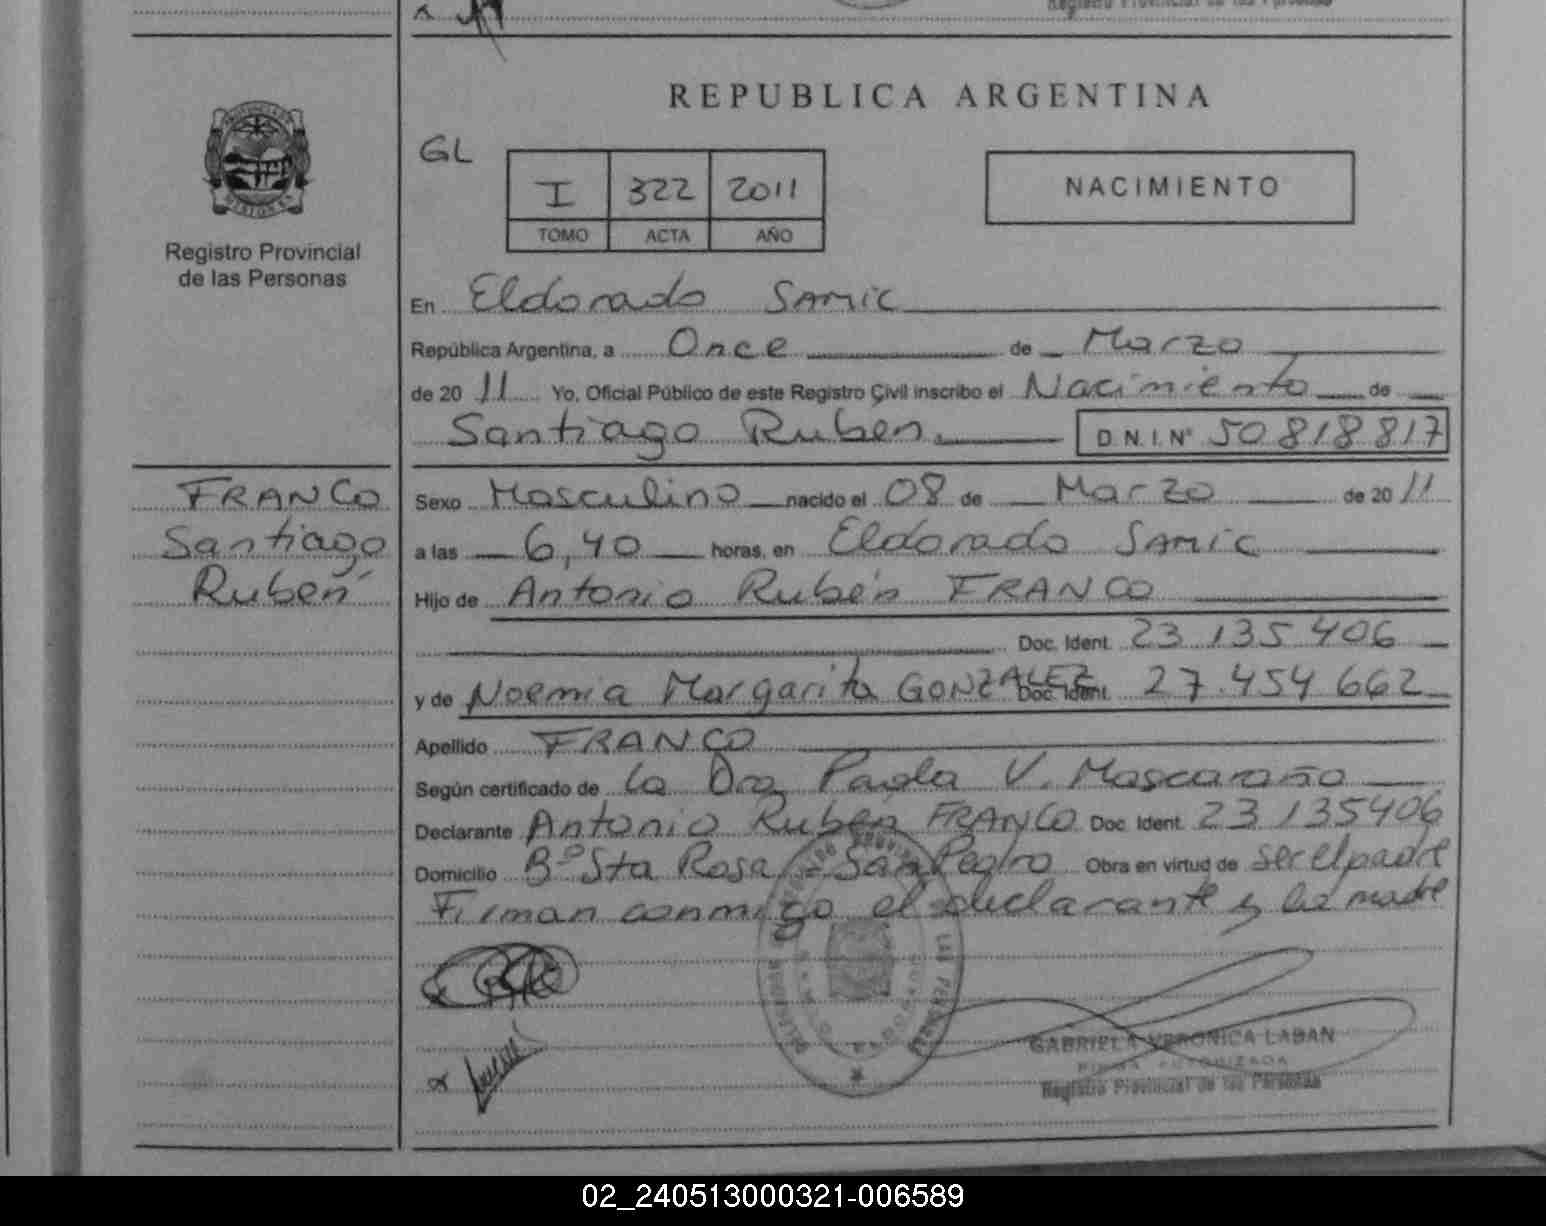 Registro Provincial de las Personas
REPUBLICA ARGENTINA
GL
I 322 2011
TOMO ACTA AÑO
NACIMIENTO
Registro Provincial
de las Personas
En Eldorado SAMIC
República Argentina, a Once de Marzo
de 20 11 Yo, Oficial Público de este Registro Civil inscribo el Nacimiento de
Santiago Rubén D.N.I. Nº 50 818 817
FRANCO
Santiago
Rubén
Sexo Masculino nacido el 08 de Marzo de 20 11
a las 6,40 horas, en Eldorado SAMIC
Hijo de Antonio Rubén FRANCO
Doc. Ident. 23 135 406
y de Noemia Margarita GONZALEZ Doc. Ident. 27.454 662
Apellido FRANCO
Según certificado de la Dra Paola V. Mascaraño
Declarante Antonio Rubén FRANCO Doc. Ident. 23 135406
Domicilio Bº Sta Rosa - San Pedro Obra en virtud de ser el padre
Firman conmigo el declarante y la madre
GABRIELA VERONICA LABAN
FIRMA AUTORIZADA
Registro Provincial de las Personas
02_240513000321-006589